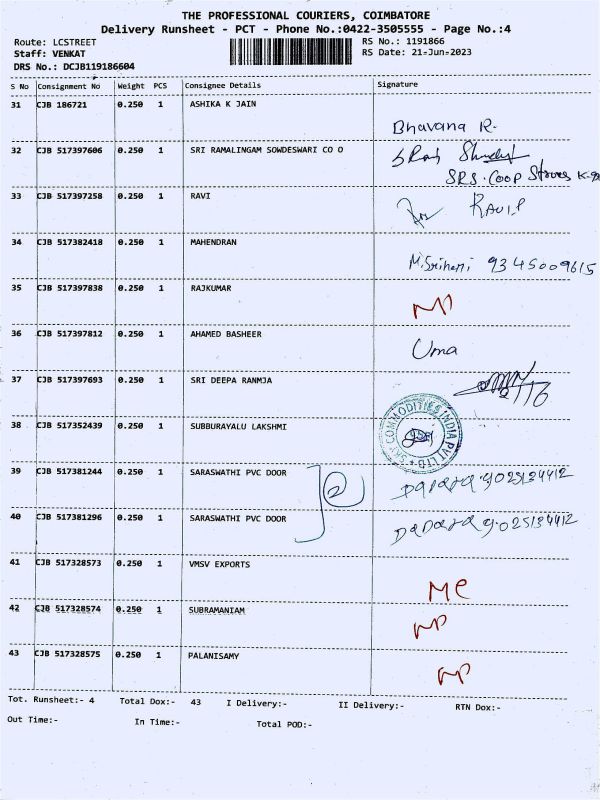 THE PROFESSIONAL COURIERS, COIMBATORE
Delivery Runsheet - PCT - Phone No.:0422-3505555 - Page No.:4
Route: LCSTREET RS No.: 1191866
Staff: VENKAT RS Date: 21-Jun-2023
DRS No.: DCJB119186604
S No Consignment No Weight PCS Consignee Details Signature
31 CJB 186721 0.250 1 ASHIKA K JAIN
Bhavana R.
32 CJB 517397606 0.250 1 SRI RAMALINGAM SOWDESWARI CO O
SRS. COOP Stores
33 CJB 517397258 0.250 1 RAVI
RAVI.P
34 CJB 517382418 0.250 1 MAHENDRAN
M.Srihari 9345009615
35 CJB 517397838 0.250 1 RAJKUMAR
36 CJB 517397812 0.250 1 AHAMED BASHEER
Uma
37 CJB 517397693 0.250 1 SRI DEEPA RANMJA
38 CJB 517352439 0.250 1 SUBBURAYALU LAKSHMI
SKY COMMODITIES INDIA PVT LTD
39 CJB 517381244 0.250 1 SARASWATHI PVC DOOR
2
40 CJB 517381296 0.250 1 SARASWATHI PVC DOOR
41 CJB 517328573 0.250 1 VMSV EXPORTS
42 CJB 517328574 0.250 1 SUBRAMANIAM
43 CJB 517328575 0.250 1 PALANISAMY
Tot. Runsheet:- 4 Total Dox:- 43 I Delivery:- II Delivery:- RTN Dox:-
Out Time:- In Time:- Total POD:-